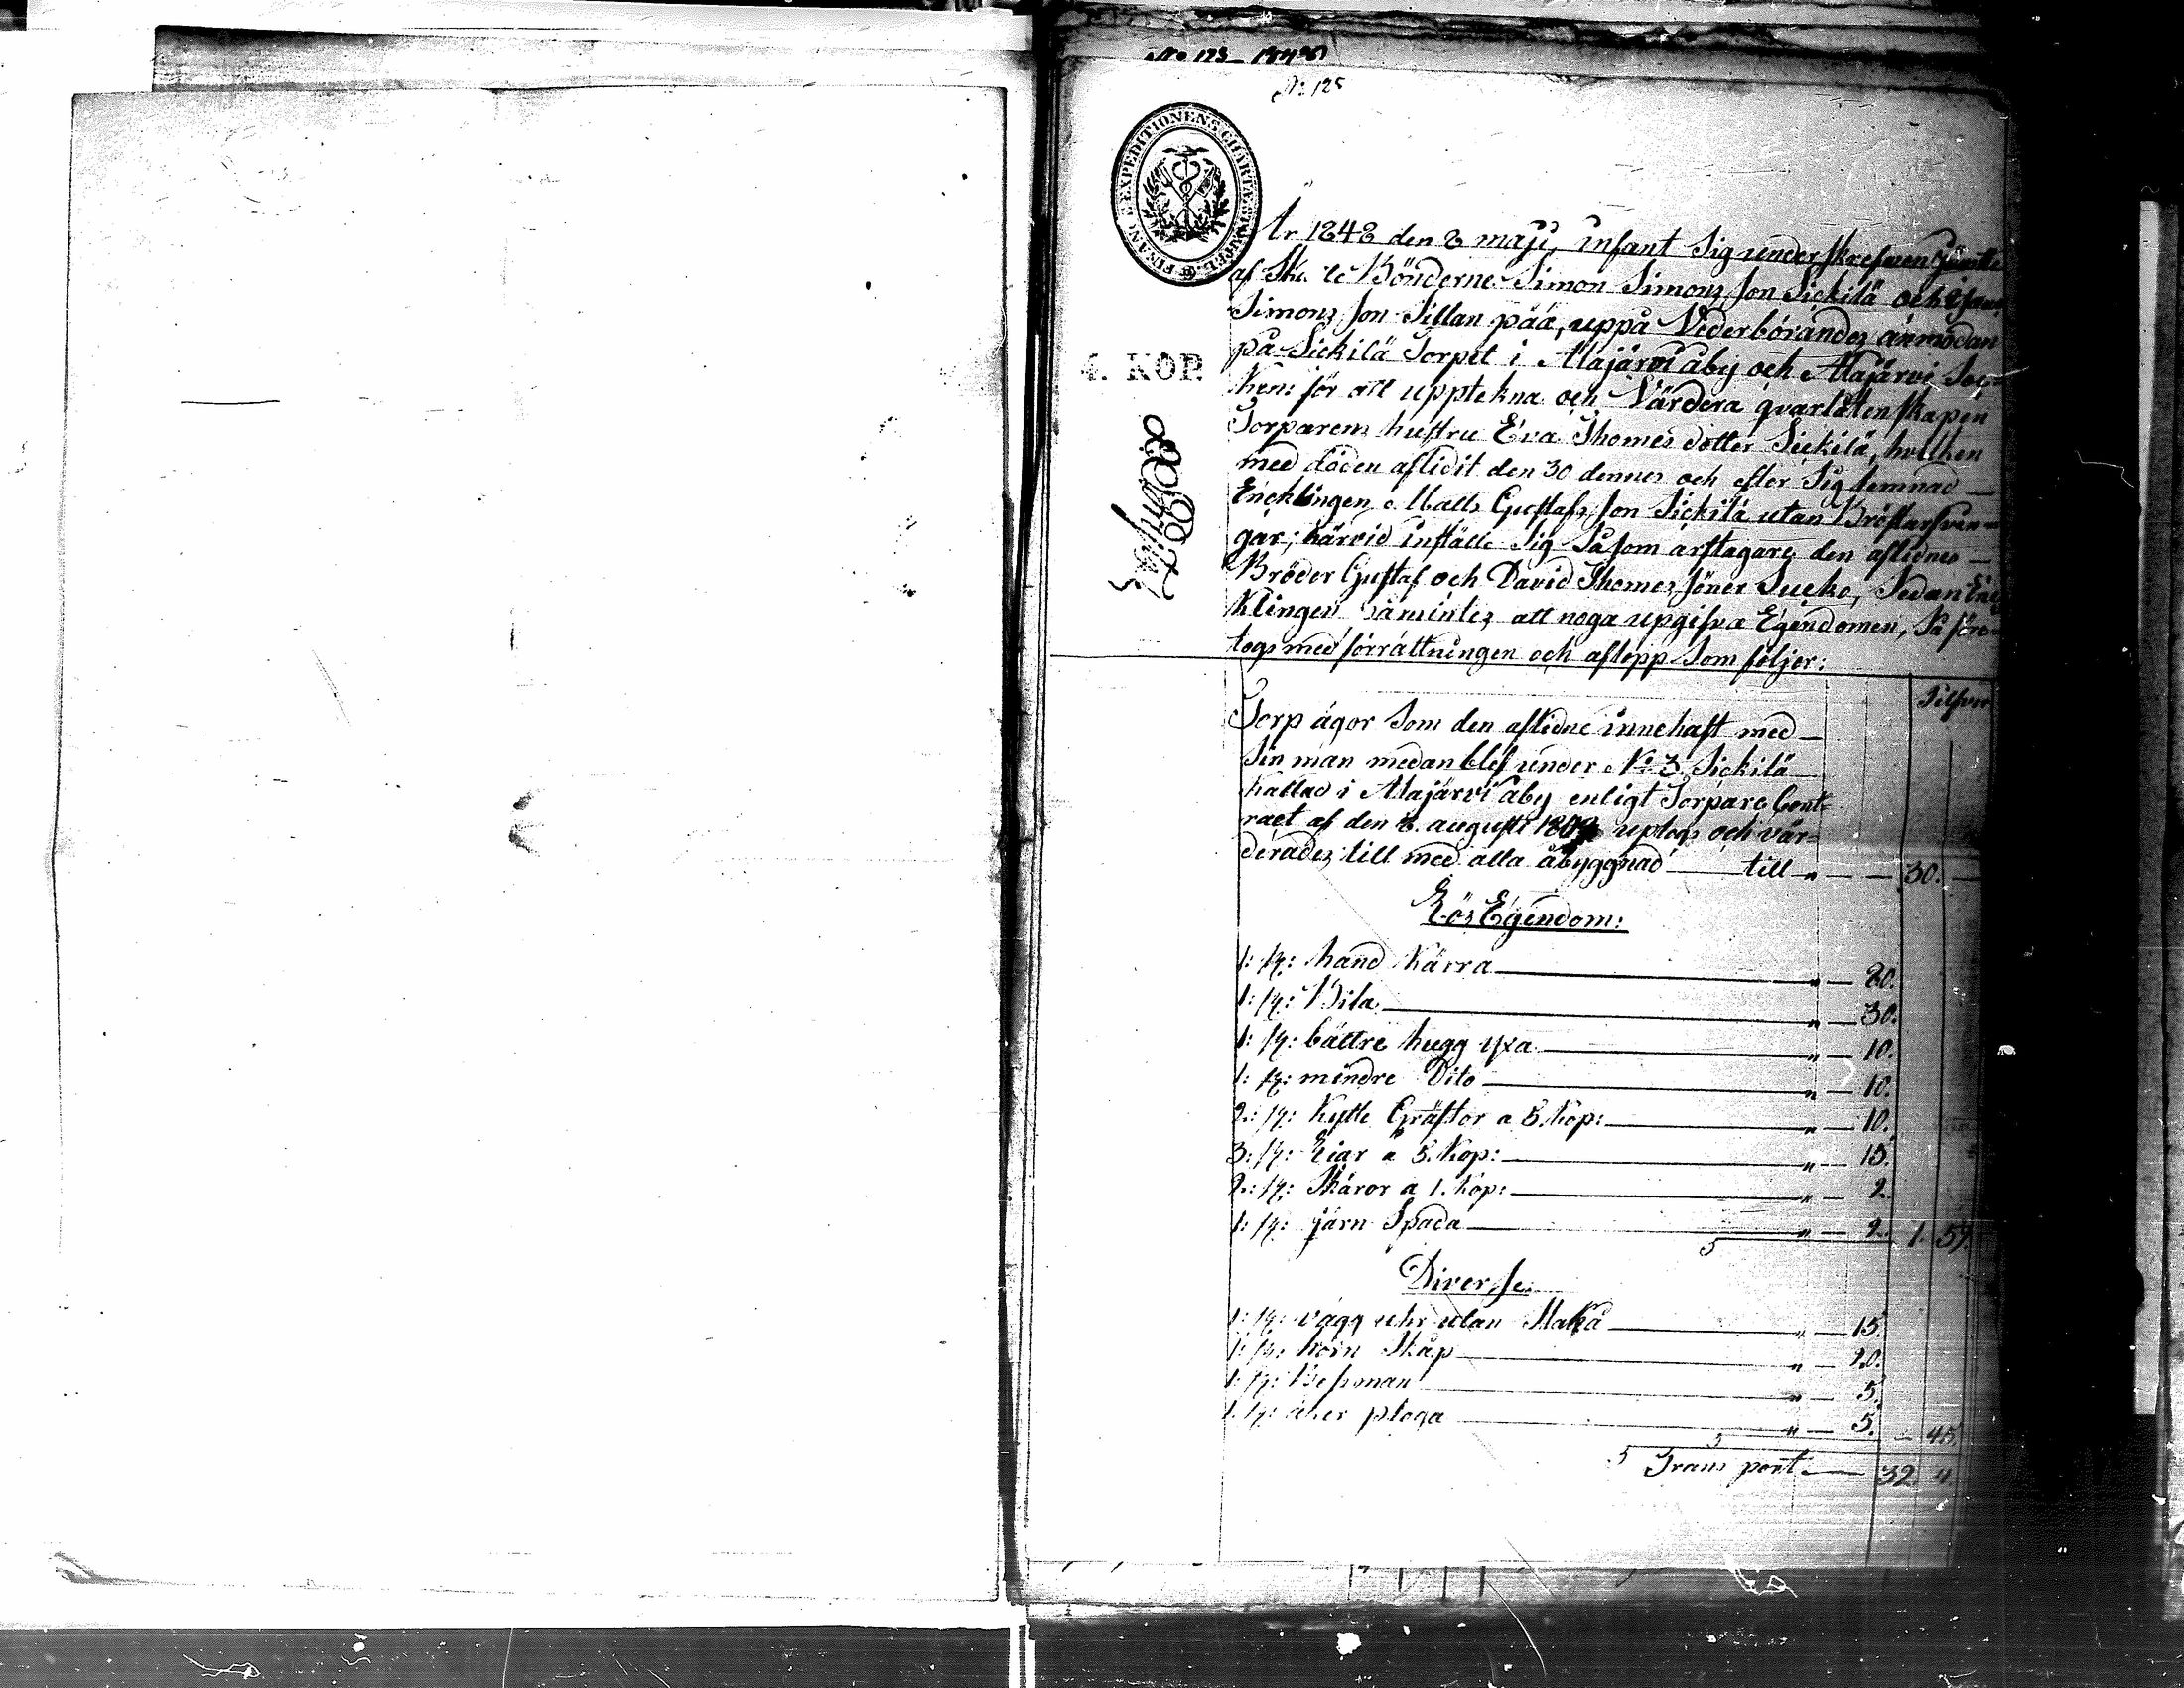 No 125
FINANCE EXPEDITIONENS CHARTÆ
4. KOP.
År 1848 den 8 maji, infant Sig underskrefwen Jemte
af Bönderne Simon Simons Son Sickilä och
Simons Son Sillan pää, uppå Vederbörandes anmodan
på Sickilä Torpet i Alajärvi åby och Alajärvi Soc-
ken: för att upptekna och Värdera qvarlåtenskapen
Torparens hustru Eva Thomes dotter Sickilä, hvilken
med döden aflidit den 30 dennes och efter Sig lemnad
Encklingen Matts Gustafs Son Sickilä utan Bröstarfvin-
gar; härvid instälte Sig Såsom arftagare den aflidnes
Bröder Gustaf och David Thomes Söner Sucko, Sedan En
klingen påmintes att noga upgifva Egendomen, Så före-
togs med förrättningen och aflopp Som följer:
Silfver
Torp ägor Som den aflidne innehaft med
Sin man medan blef under No 3 Sickilä
kallad i Alajärvi åby enligt Torpare Cont-
ract af den 8. augusti uptogs och vär-
derades till med alla åbyggnad till " — 30. —
Lös Egendom:
1: st: hand kärra " — 80.
1: st: Bila " — 30.
1: st: bättre hugg yxa " — 10.
1: st: mindre Dito " — 10.
2: st: Kytte Gräftor a 5. kop: " — 10.
3: st: Liar a 5. Kop: " — 15.
2: st: Skäror a 1. kop: " — 2.
1: st: järn Spada " — 2. 1. 59.
Diverse.
1: st: vägg uhr utan " — 15.
1: st: hörn Skåp " — 20.
1: st: Besman " — 5.
1: st: åker ploga " — 5. — 45.
Trans port — 32 4.